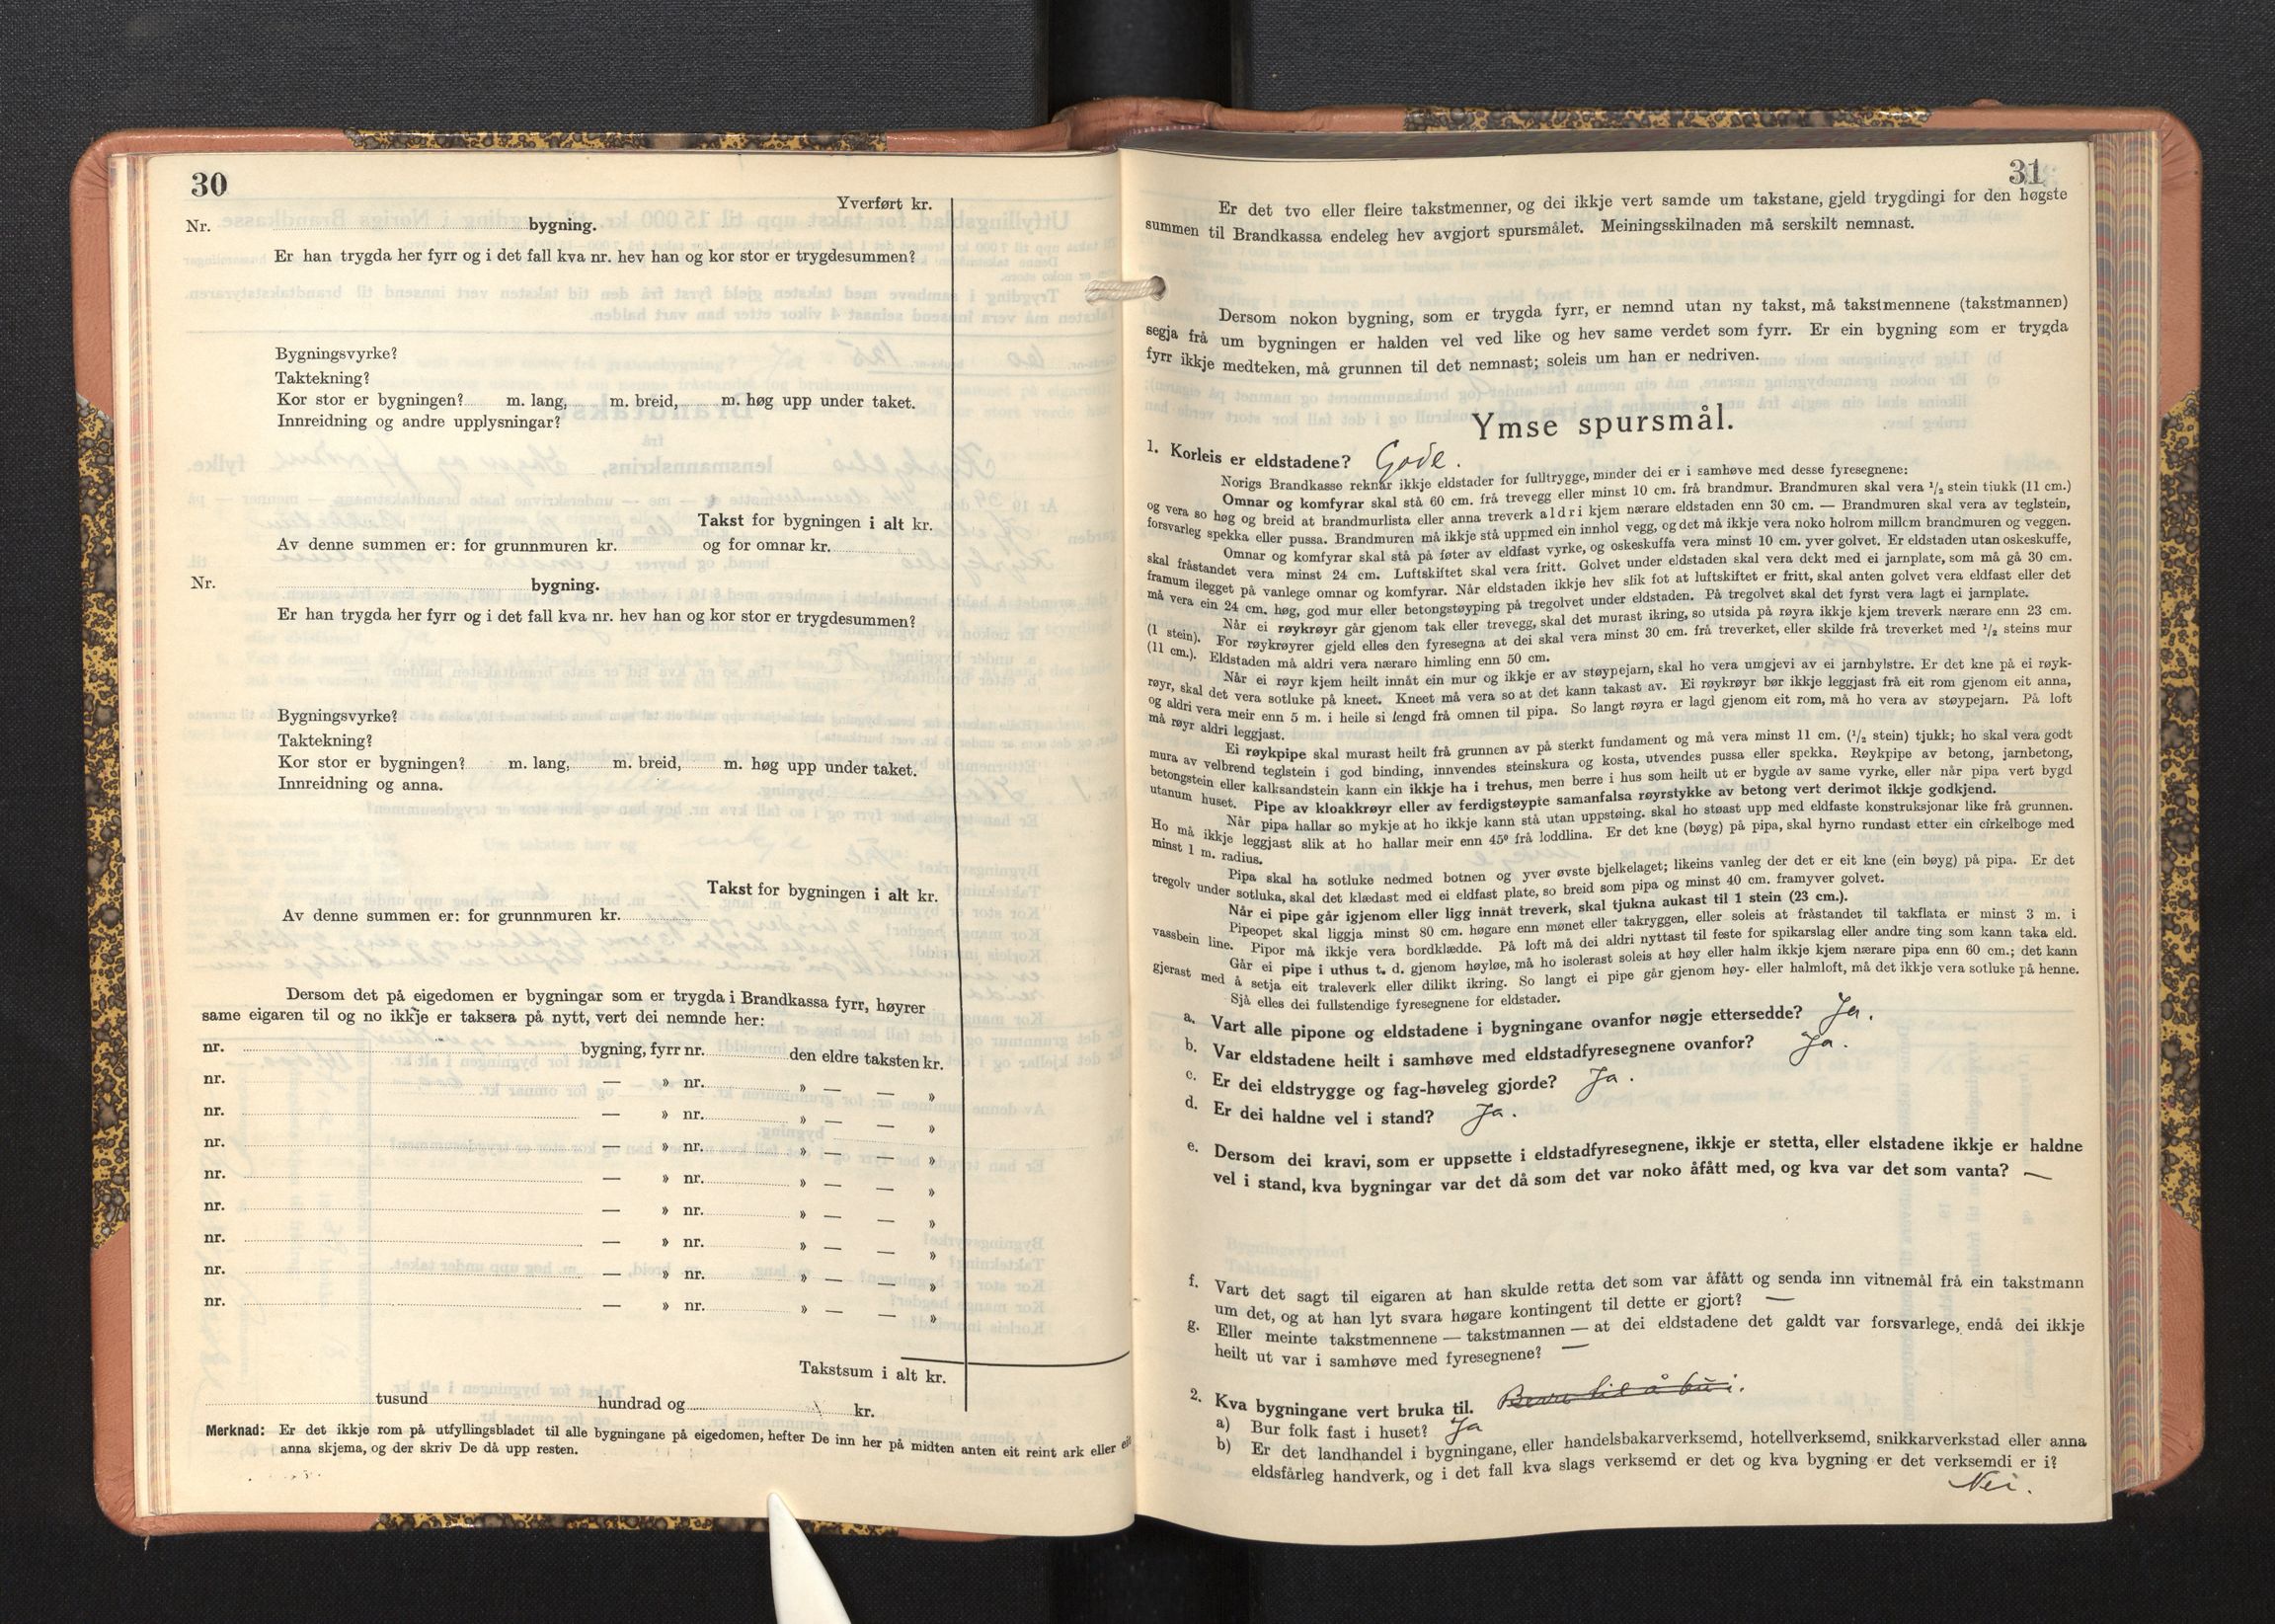 30
Yverført kr.
Nr. bygning.
Er han trygda her fyrr og i det fall kva nr. hev han og kor stor er trygdesummen?
Bygningsvyrke?
Taktekning?
Kor stor er bygningen? m. lang, m. breid, m. høg upp under taket.
Innreidning og andre upplysningar?
Takst for bygningen i alt kr.
Av denne summen er: for grunnmuren kr. og for omnar kr.
Nr. bygning.
Er han trygda her fyrr og i det fall kva nr. hev han og kor stor er trygdesummen?
Bygningsvyrke?
Taktekning?
Kor stor er bygningen? m. lang, m. breid, m. høg upp under taket.
Innreidning og anna.
Takst for bygningen i alt kr.
Av denne summen er: for grunnmuren kr.
Dersom det på eigedomen er bygningar som er trygda i Brandkassa fyrr, høyrer
same eigaren til og no ikkje er taksera på nytt, vert dei nemnde her:
nr. bygning, fyrr nr. den eldre taksten kr.
nr. — » nr. » — — »
nr. — » nr. » — — »
nr. — » nr. » — — »
nr. — » nr. » — — »
nr. — » nr. » — — »
nr. — » nr. » — — »
nr. — » nr. » — — »
nr. — » nr. » — — »
Takstsum i alt kr.
tusund hundrad og kr.
Merknad: Er det ikkje rom på utfyllingsbladet til alle bygningane på eigedomen, hefter De inn her på midten anten eit reint ark eller eit
anna skjema, og der skriv De då upp resten.
31
Er det tvo eller fleire takstmenner, og dei ikkje vert samde um takstane, gjeld trygdingi for den høgste
summen til Brandkassa endeleg hev avgjort spursmålet. Meiningsskilnaden må serskilt nemnast.
Dersom nokon bygning, som er trygda fyrr, er nemnd utan ny takst, må takstmennene (takstmannen)
segja frå um bygningen er halden vel ved like og hev same verdet som fyrr. Er ein bygning som er trygda
fyrr ikkje medteken, må grunnen til det nemnast; soleis um han er nedriven.
Ymse spursmål.
1. Korleis er eldstadene? Gode.
Norigs Brandkasse reknar ikkje eldstader for fulltrygge, minder dei er i samhøve med desse fyresegnene:
Omnar og komfyrar skal stå 60 cm. frå trevegg eller minst 10 cm. frå brandmur. Brandmuren skal vera 1/2 stein tiukk (11 cm.)
og vera so høg og breid at brandmurlista eller anna treverk aldri kjem nærare eldstaden enn 30 cm. — Brandmuren skal vera av teglstein,
forsvarleg spekka eller pussa. Brandmuren må ikkje stå uppmed ein innhol vegg, og det må ikkje vera noko holrom millom brandmuren og veggen.
Omnar og komfyrar skal stå på føter av eldfast vyrke, og oskeskuffa vera minst 10 cm. yver golvet. Er eldstaden utan oskeskuffe,
skal fråstandet vera minst 24 cm. Luftskiftet skal vera fritt. Golvet under eldstaden skal vera dekt med ei jarnplate, som må gå 30 cm.
framum ilegget på vanlege omnar og komfyrar. Når eldstaden ikkje hev slik fot at luftskiftet er fritt, skal anten golvet vera eldfast eller det
må vera ein 24 cm. høg, god mur eller betongstøyping på tregolvet under eldstaden. På tregolvet skal det fyrst vera lagt ei jarnplate.
Når ei røykrøyr går gjenom tak eller trevegg, skal det murast ikring, so utsida på røyra ikkje kjem treverk nærare enn 23 cm.
(1 stein). For røykrøyrer gjeld elles den fyresegna at dei skal vera minst 30 cm. frå treverket, eller skilde frå treverket med 1/2 steins mur
(11 cm.). Eldstaden må aldri vera nærare himling enn 50 cm.
Når ei røyr kjem heilt innåt ein mur og ikkje er av støypejarn, skal ho vera umgjevi av ei jarnhylstre. Er det kne på ei røyk-
røyr, skal det vera sotluke på kneet. Kneet må vera so at det kann takast av. Ei røykrøyr bør ikkje leggjast frå eit rom gjenom eit anna,
og aldri vera meir enn 5 m. i heile si lengd frå omnen til pipa. So langt røyra er lagd gjenom eit rom, må ho vera av støypejarn. På loft
må røyr aldri leggjast.
Ei røykpipe skal murast heilt frå grunnen av på sterkt fundament og må vera minst 11 cm. (1/2 stein) tjukk; ho skal vera godt
mura av velbrend teglstein i god binding, innvendes steinskura og kosta, utvendes pussa eller spekka. Røykpipe av betong, jarnbetong,
betongstein eller kalksandstein kann ein ikkje ha i trehus, men berre i hus som heilt ut er bygde av same vyrke, eller når pipa vert bygd
utanum huset. Pipe av kloakkrøyr eller av ferdigstøypte samanfalsa røyrstykke av betong vert derimot ikkje godkjend.
Når pipa hallar so mykje at ho ikkje kann stå utan uppstøing. skal ho støast upp med eldfaste konstruksjonar like frå grunnen.
Ho må ikkje leggjast slik at ho hallar meir enn 45° frå loddlina. Er det kne (bøyg) på pipa, skal hyrno rundast etter ein cirkelboge med
minst 1 m. radius.
Pipa skal ha sotluke nedmed botnen og yver øvste bjelkelaget; likeins vanleg der det er eit kne (ein bøyg) på pipa. Er det
tregolv under sotluka, skal det klædast med ei eldfast plate, so breid som pipa og minst 40 cm. framyver golvet.
Når ei pipe går igjenom eller ligg innåt treverk, skal tjukna aukast til 1 stein (23 cm.).
Pipeopet skal liggja minst 80 cm. høgare enn mønet eller takryggen, eller soleis at fråstandet til takflata er minst 3 m. i
vassbein line. Pipor må ikkje vera bordklædde. På loft må dei aldri nyttast til feste for spikarslag eller andre ting som kann taka eld.
Går ei pipe i uthus t. d. gjenom høyløe, må ho isolerast soleis at høy eller halm ikkje kjem nærare pipa enn 60 cm.; det kann
gjerast med å setja eit traleverk eller dilikt ikring. So langt ei pipe går gjenom høy- eller halmloft, må det ikkje vera sotluke på henne.
Sjå elles dei fullstendige fyresegnene for eldstader.
a. Vart alle pipone og eldstadene i bygningane ovanfor nøgje ettersedde? Ja.
b. Var eldstadene heilt i samhøve med eldstadfyresegnene ovanfor? Ja.
c. Er dei eldstrygge og fag-høveleg gjorde? Ja.
d. Er dei haldne vel i stand? Ja.
e. Dersom dei kravi, som er uppsette i eldstadfyresegnene, ikkje er stetta, eller elstadene ikkje er haldne
vel i stand, kva bygningar var det då som det var noko åfått med, og kva var det som vanta? —
f. Vart det sagt til eigaren at han skulde retta det som var åfått og senda inn vitnemål frå ein takstmann
um det, og at han lyt svara høgare kontingent til dette er gjort? —
g. Eller meinte takstmennene — takstmannen — at dei eldstadene det galdt var forsvarlege, endå dei ikkje
heilt ut var i samhøve med fyresegnene? —
2. Kva bygningane vert bruka til. Berre til å bu i.
a) Bur folk fast i huset? Ja
b) Er det landhandel i bygningane, eller handelsbakarverksemd, hotellverksemd, snikkarverkstad eller anna
eldsfårleg handverk, og i det fall kva slags verksemd er det og kva bygning er det verksemdi er i?
Nei.